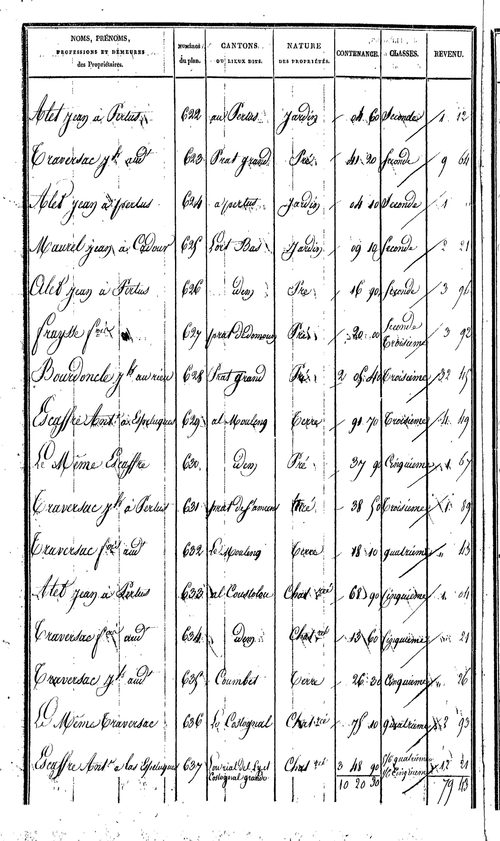 NOMS, PRÉNOMS, PROFESSIONS ET DEMEURES des Propriétaires. NUMÉROS du plan. CANTONS. OU LIEUX DITS. NATURE DES PROPRIÉTÉS. CONTENANCE. CLASSES. REVENU.
Alet jean à Pertus 622 au Pertus Jardin 04 60 Seconde 1 12
Traversac jh audt 623 Prat grand Pré 41 20 Seconde 9 64
Alet jean à pertus 624 a pertus Jardin 04 10 Seconde 1 "
Maurel jean à Cadour 625 Lort Bas Jardin 09 10 Seconde 2 21
Alet jean à Pertus 626 idem Pré 16 90 Seconde 3 96
fraysse fois 627 prat Pré 20 00 Seconde Troisieme 3 92
Bourdoncle jh au rieu 628 Prat grand Pré 2 05 40 Troisieme 32 45
Escaffre Antne à Espeluques 629 al Mouleng Terre 91 70 Troisieme 4 49
Le Même Escaffre 630 idem Pré 37 90 Cinquieme 1 67
Traversac jh à Pertus 631 prat de Pré 38 50 Troisieme 1 89
Traversac fois audt 632 Le Mouleng Terre 18 10 quatrieme " 43
Alet jean à Pertus 633 al Coustolou Chat 68 90 Cinquieme 1 04
Traversac fois audt 634 idem Chat 13 60 Cinquieme " 21
Traversac jh audt 635 Coumbet Terre 26 30 Cinquieme " 26
Le Même Traversac 636 Le Costognal Chat 75 10 Quatrieme 2 93
Escaffre Antne a las Espeluques 637 Costognal grando Chat 3 48 90 quatrieme Cinquieme 12 21
10 20 30 79 43